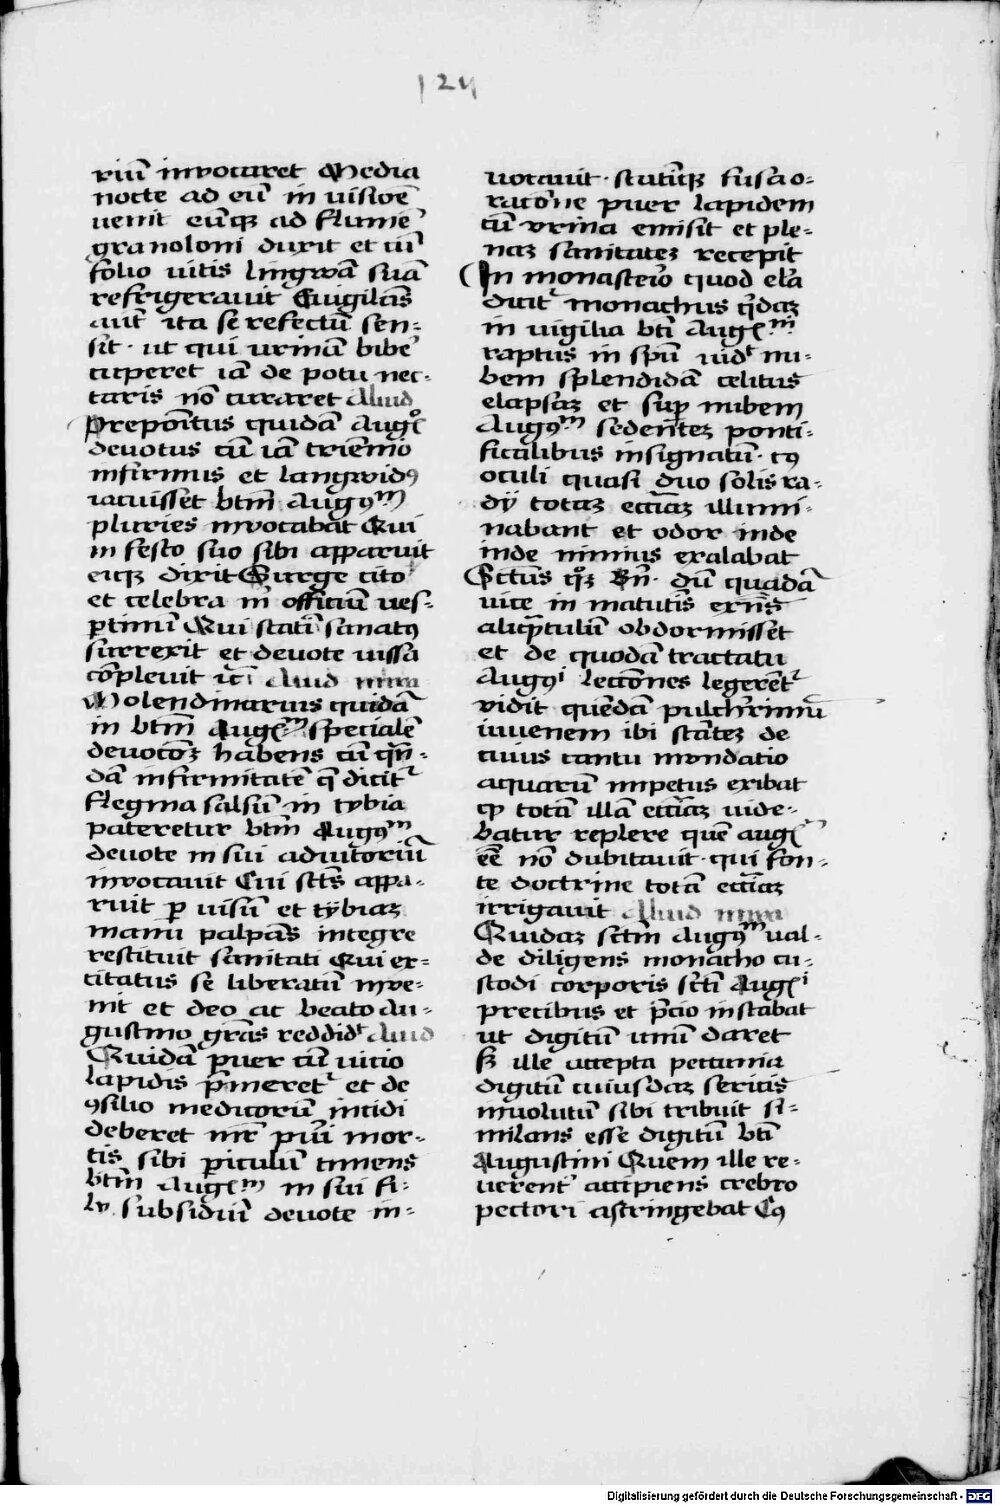 124
riū invocaret Media
nocte ad eū in visioē
venit eūqꝫ ad flumē
granoloni duxit et cū
folio vitis lingwā suā
refrigeravit Evigilās
aūt ita se refectū sen-
sit · ut qui urinā bibe᷑
ceperet iā de potu nec-
taris nō curaret Aliud
Prepoītus quidā Augꝰ
devotus cū iā trieñio
infirmus et langwidꝰ
iacuisset btm̄ Augꝰᵐ
pluries invocabat Qui
in festo suo sibi apparuit
eiqꝫ dixit Surge cito
et celebra m̄ officiū ves-
ꝑtinū Qui statī sanatꝰ
surrexit et devote iussa
cōplevit ꝛc̄ Aliud mira
Molendinarius quidā
in btm̄ Augꝰᵐ specialē
devocōꝫ habens cū q̄n-
dā infirmitatē q̄ dicit᷑
flegma salsū in tybia
pateretur btm̄ Augꝰᵐ
devote in sui adiutoriū
invocavit Cui sctūs appa-
ruit ꝑ visū et tybiaꝫ
manu palpās integre
restituit sanitati Qui ex-
citatus se liberatū inve-
nit et deo ac beato Au-
gustino gr̄as reddid᷑ Aliud
Quidā puer cū vicio
lapidis p̄meret᷑ et de
ꝯsilio medicorū incidi
deberet mr̄ pūi mor-
tis sibi ꝑiculū timens
btm̄ Augꝰᵐ in sui fi-
ly subsidiū devote in-
vocavit · statimqꝫ fusa o-
racōne puer lapidem
cū vrina emisit et ple-
naꝫ sanitateꝫ recepit
In monasterio quod el̄a
dicit᷑ monachus q̄daꝫ
in vigilia bti Augꝰⁱ
raptus in spū vid᷑ nu-
bem splendidā celitus
elapsaꝫ et suꝑ nubem
Augꝰᵐ sedenteꝫ ponti-
ficalibus insignatū · cꝰ
oculi quasi duo solis ra-
dy totaꝫ ecc̄iaꝫ illumi-
nabant et odor inde
inde nimius exalabat
Sctūs qꝫ Bn̄ · dū quadā
vice in matutīs exn̄s
aliq̄ntulū obdormisset
et de quodā tractatu
Augꝰⁱ lecciones legerent᷑
vidit quendā pulcherrimū
iuvenem ibi stateꝫ de
cuius cantu inundatio
aquarū impetus exibat
ꝙ totā illā ecc̄iaꝫ vide-
batur replere quē Augꝰᵐ
eē nō dubitavit · qui fon-
te doctrine totā ecc̄iaꝫ
irrigavit Aliud mira
Quidaꝫ sctm̄ Augꝰᵐ val-
de diligens monacho cu-
stodi corporis scti Augꝰⁱ
precibus et p̄cio instabat
ut digitū unū daret
sꝫ ille accepta pecunia
digitū cuiusdaꝫ sericis
involutū sibi tribuit si-
milans esse digitū bti
Augustini Quem ille re-
verent᷑ accipiens crebro
pectori astringebat Cꝰ
Digitalisierung gefördert durch die Deutsche Forschungsgemeinschaft - DFG